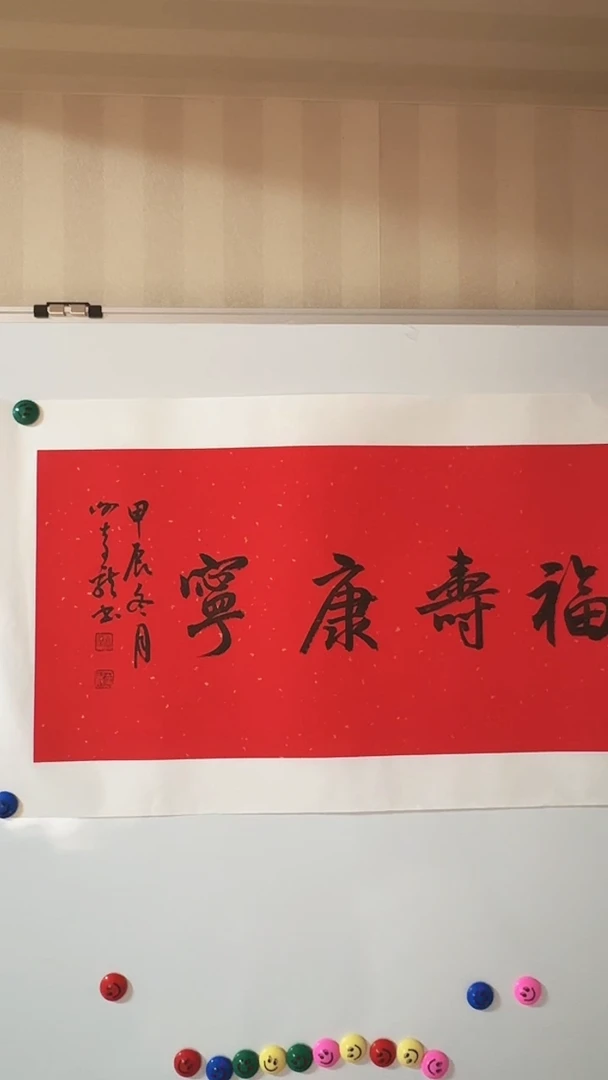 福壽康寧
甲辰冬月
書